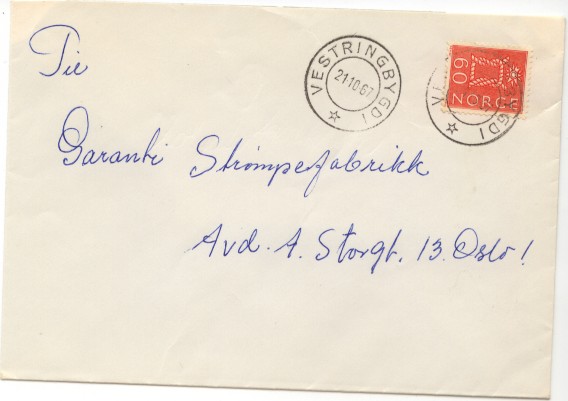 Til
VESTRINGBYGDI
21.10.67
60
NORGE
VE GDI
Garanti Strømpefabrikk
Avd. A. Storgt. 13. Oslo!